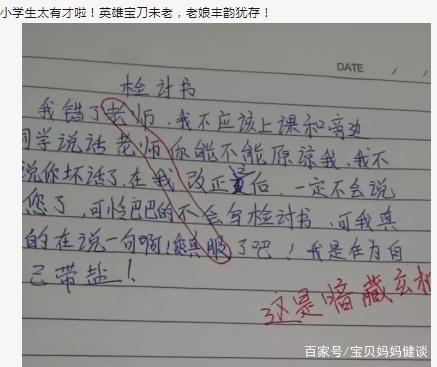 小学生太有才啦！英雄宝刀未老，老娘丰韵犹存！
DATE / /
检讨书
我错了老师，我不应该上课和旁边
同学说话老师你能不能原谅我，我不
说你坏话了，在我改正后，一定不会说
您了，可怜巴巴的不会写检讨书，可我真
的在说一句啊！您真服了吧！我是在为自
己带盐！
这是暗藏玄机
百家号/宝贝妈妈健谈